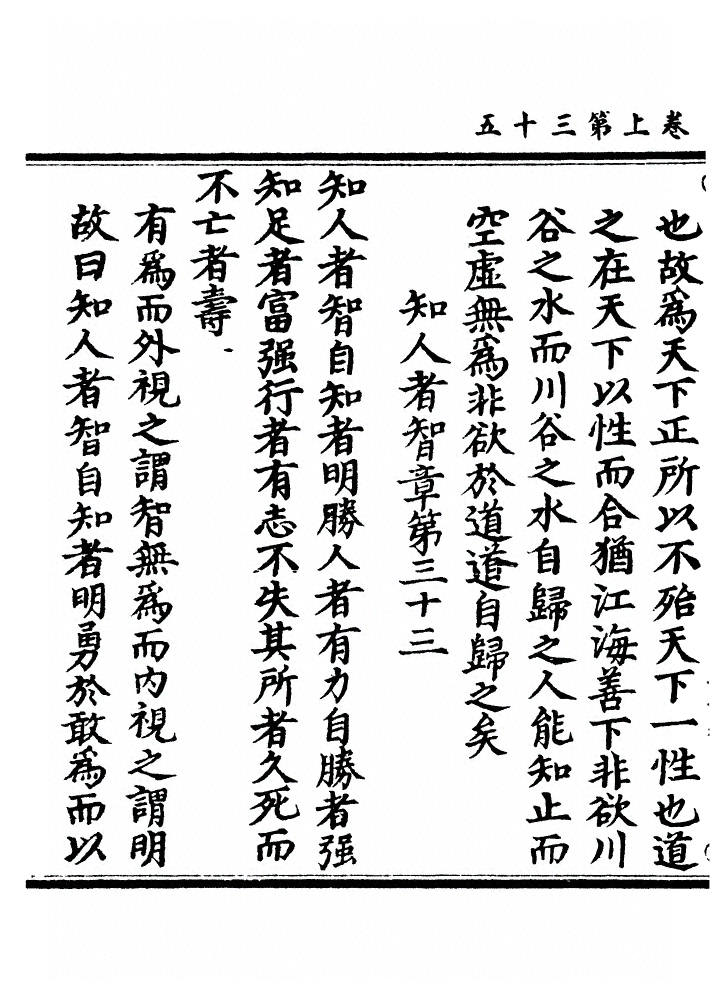 卷上第三十五
也故爲天下正所以不殆天下一性也道
之在天下以性而合猶江海善下非欲川
谷之水而川谷之水自歸之人能知止而
空虛無爲非欲於道道自歸之矣
知人者智章第三十三
知人者智自知者明勝人者有力自勝者强
知足者富强行者有志不失其所者久死而
不亡者壽
有爲而外視之謂智無爲而內視之謂明
故曰知人者智自知者明勇於敢爲而以